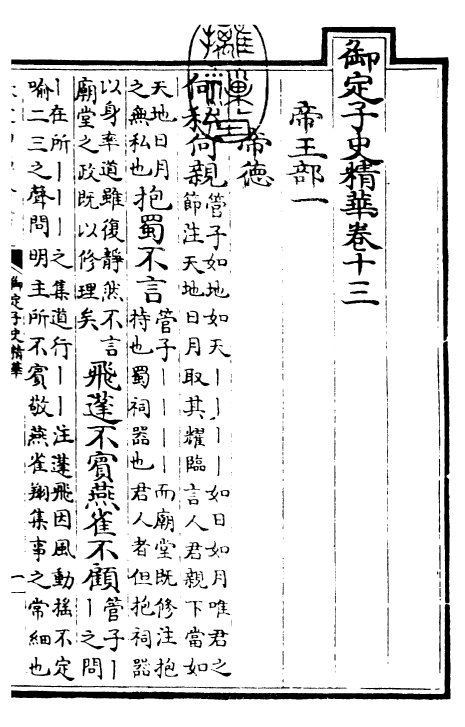 御定子史精華卷十三
帝王部一
帝德
何私何親
管子如地如天丨丨丨丨如日如月唯君之
節注天地日月取其耀臨言人君親下當如
天地日月
之無私也
抱蜀不言
管子丨丨丨丨而廟堂既修注抱
持也蜀祠器也君人者但抱祠器
以身率道雖復靜然不言
廟堂之政既以修理矣
飛蓬不賓燕雀不顧
管子丨
丨之問
丨在所丨丨丨之集道行丨丨注蓬飛因風動搖不定
喻二三之聲問明主所不賓敬燕雀翔集事之常細也
御定子史精華
一